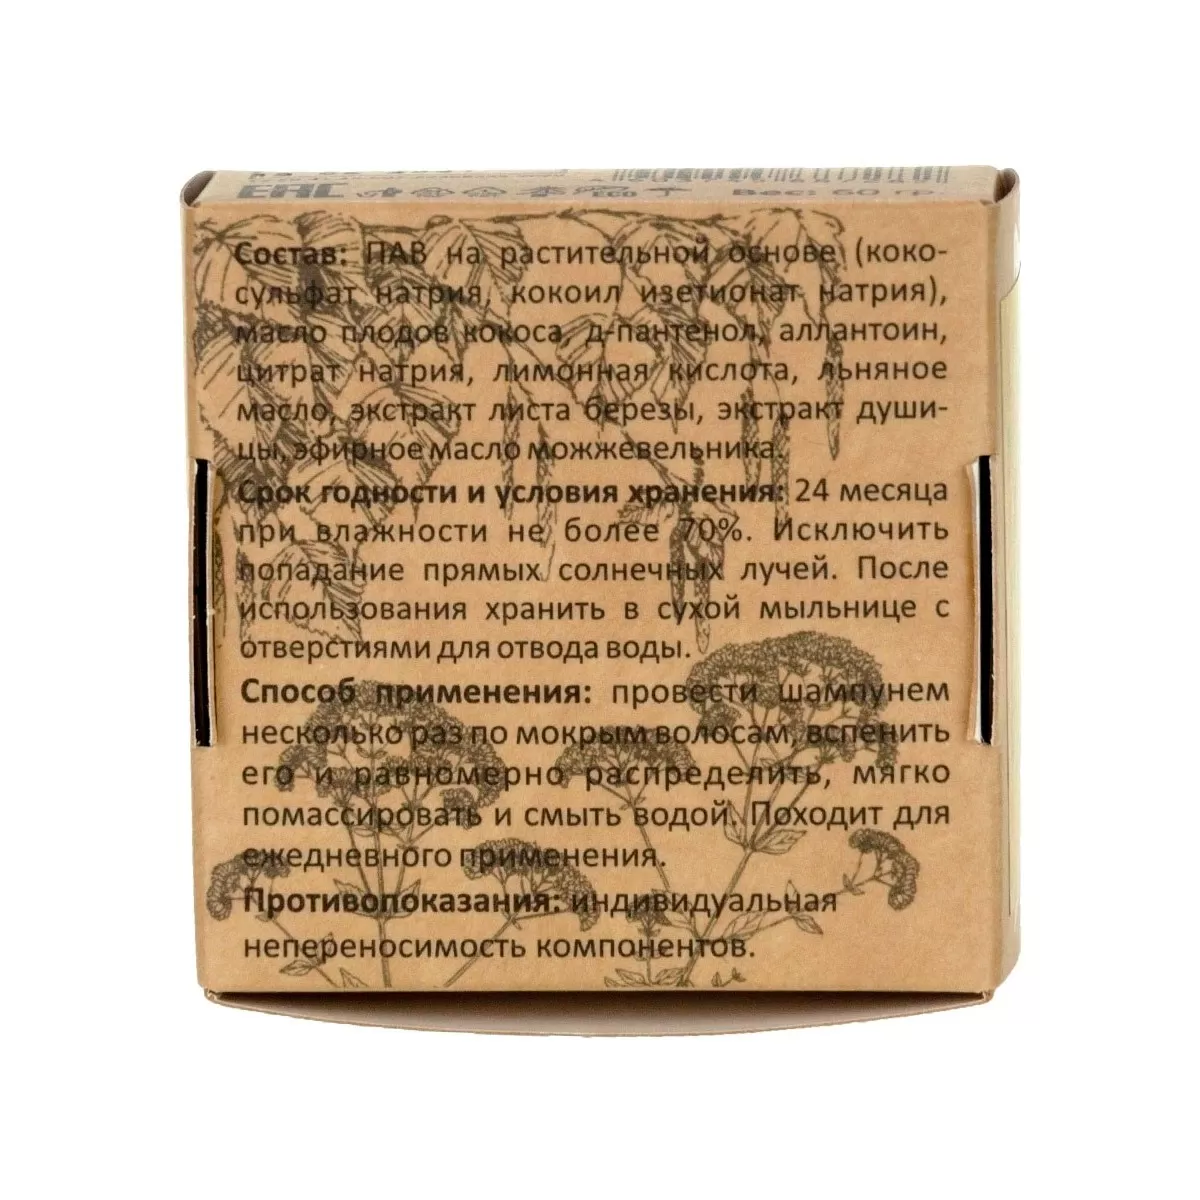 EAC ECO Вес: 60 гр.
Состав: ПАВ на растительной основе (коко-
сульфат натрия, кокоил изетионат натрия),
масло плодов кокоса, д-пантенол, аллантоин,
цитрат натрия, лимонная кислота, льняное
масло, экстракт листа березы, экстракт души-
цы, эфирное масло можжевельника.
Срок годности и условия хранения: 24 месяца
при влажности не более 70%. Исключить
попадание прямых солнечных лучей. После
использования хранить в сухой мыльнице с
отверстиями для отвода воды.
Способ применения: провести шампунем
несколько раз по мокрым волосам, вспенить
его и равномерно распределить, мягко
помассировать и смыть водой. Походит для
ежедневного применения.
Противопоказания: индивидуальная
непереносимость компонентов.